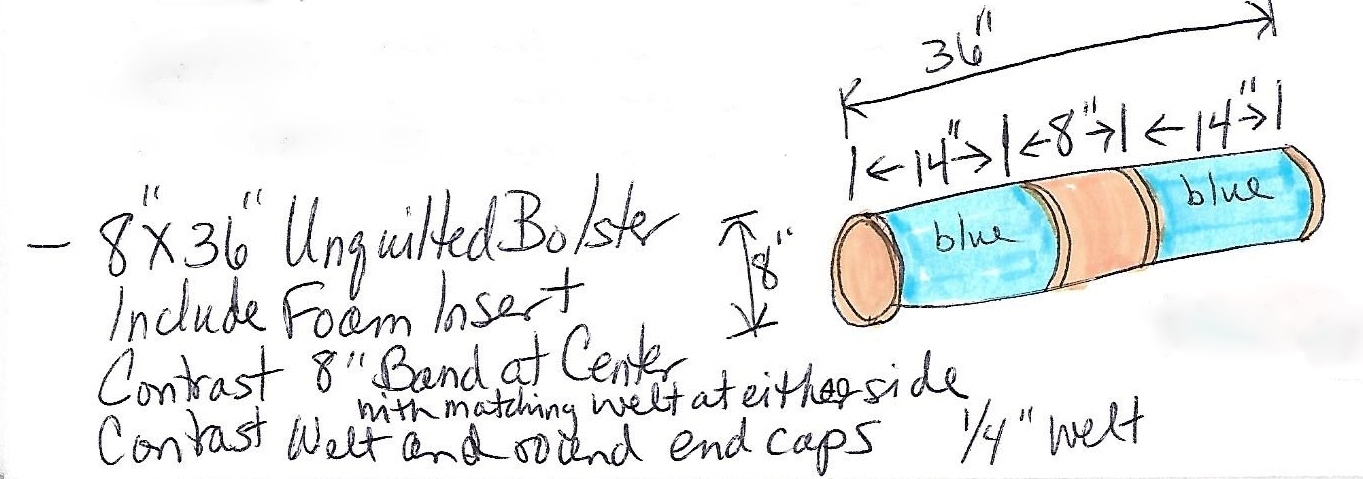 36"
14" 8" 14"
blue
blue
8"
– 8" X 36" Unquilted Bolster
Include Foam Insert
Contrast 8" Band at Center
with matching welt at either side
Contrast Welt and round end caps 1/4" welt